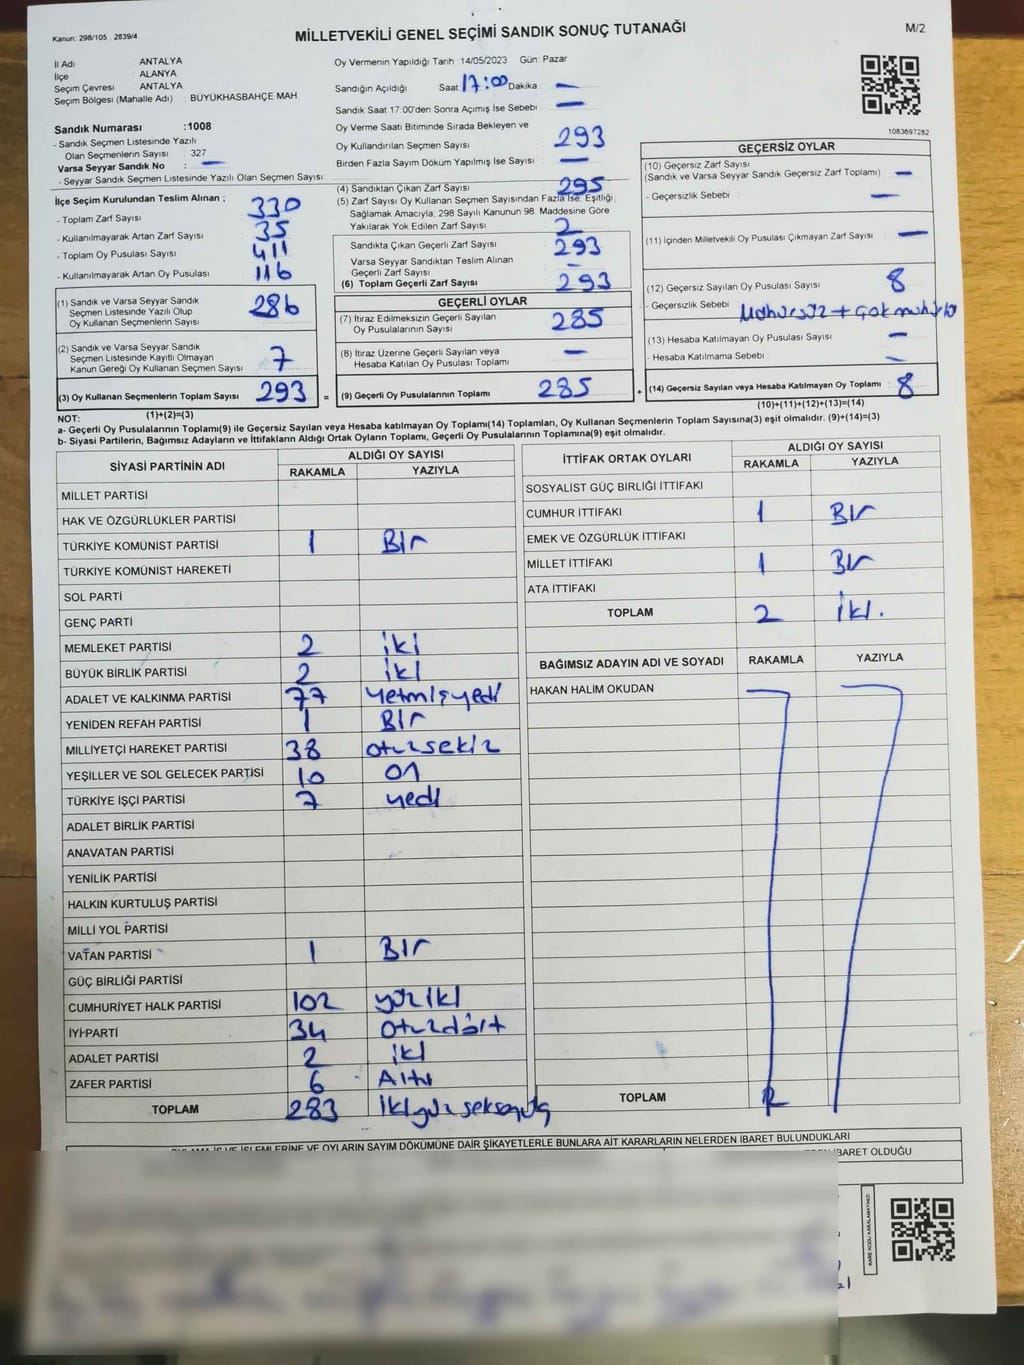 Kanun: 298/105 . 2839/4
MİLLETVEKİLİ GENEL SEÇİMİ SANDIK SONUÇ TUTANAĞI
M/2
İl Adı : ANTALYA
İlçe : ALANYA
Seçim Çevresi : ANTALYA
Seçim Bölgesi (Mahalle Adı) : BÜYÜKHASBAHÇE MAH.
Sandık Numarası :1008
- Sandık Seçmen Listesinde Yazılı
Olan Seçmenlerin Sayısı : 327
Varsa Seyyar Sandık No : —
- Seyyar Sandık Seçmen Listesinde Yazılı Olan Seçmen Sayısı:
Oy Vermenin Yapıldığı Tarih :14/05/2023 Gün: Pazar
Sandığın Açıldığı Saat 17:00 Dakika : —
Sandık Saat 17:00'den Sonra Açımış İse Sebebi : —
Oy Verme Saati Bitiminde Sırada Bekleyen ve
Oy Kullandırılan Seçmen Sayısı : 293
Birden Fazla Sayım Döküm Yapılmış İse Sayısı : —
1083697282
İlçe Seçim Kurulundan Teslim Alınan ;
- Toplam Zarf Sayısı : 330
- Kullanılmayarak Artan Zarf Sayısı : 35
- Toplam Oy Pusulası Sayısı : 411
- Kullanılmayarak Artan Oy Pusulası : 116
(1) Sandık ve Varsa Seyyar Sandık
Seçmen Listesinde Yazılı Olup
Oy Kullanan Seçmenlerin Sayısı : 286
(2) Sandık ve Varsa Seyyar Sandık
Seçmen Listesinde Kayıtlı Olmayan
Kanun Gereği Oy Kullanan Seçmen Sayısı : 7
(3) Oy Kullanan Seçmenlerin Toplam Sayısı : 293 =
(1)+(2)=(3)
(4) Sandıktan Çıkan Zarf Sayısı : 295
(5) Zarf Sayısı Oy Kullanan Seçmen Sayısından Fazla İse, Eşitliği
Sağlamak Amacıyla, 298 Sayılı Kanunun 98. Maddesine Göre
Yakılarak Yok Edilen Zarf Sayısı : 2
Sandıkta Çıkan Geçerli Zarf Sayısı : 293
Varsa Seyyar Sandıktan Teslim Alınan
Geçerli Zarf Sayısı : —
(6) Toplam Geçerli Zarf Sayısı : 293
GEÇERLİ OYLAR
(7) İtiraz Edilmeksizin Geçerli Sayılan
Oy Pusulalarının Sayısı : 285
(8) İtiraz Üzerine Geçerli Sayılan veya
Hesaba Katılan Oy Pusulası Toplamı : —
(9) Geçerli Oy Pusulalarının Toplamı : 285 +
GEÇERSİZ OYLAR
(10) Geçersiz Zarf Sayısı
(Sandık ve Varsa Seyyar Sandık Geçersiz Zarf Toplamı) : —
- Geçersizlik Sebebi : —
(11) İçinden Milletvekili Oy Pusulası Çıkmayan Zarf Sayısı : —
(12) Geçersiz Sayılan Oy Pusulası Sayısı : 8
- Geçersizlik Sebebi : Mühürsüz +
(13) Hesaba Katılmayan Oy Pusulası Sayısı : —
- Hesaba Katılmama Sebebi : —
(14) Geçersiz Sayılan veya Hesaba Katılmayan Oy Toplamı : 8
(10)+(11)+(12)+(13)=(14)
NOT:
a- Geçerli Oy Pusulalarının Toplamı(9) ile Geçersiz Sayılan veya Hesaba Katılmayan oy Toplamı(14) Toplamları, Oy Kullanan Seçmenlerin Toplam Sayısına(3) eşit olmalıdır. (9)+(14)=(3)
b- Siyasi Partilerin, Bağımsız Adayların ve İttifakların Aldığı Ortak Oyların Toplamı, Geçerli Oy Pusulalarının Toplamına(9) eşit olmalıdır.
SİYASİ PARTİNİN ADI ALDIĞI OY SAYISI
RAKAMLA YAZIYLA
MİLLET PARTİSİ
HAK VE ÖZGÜRLÜKLER PARTİSİ
TÜRKİYE KOMÜNİST PARTİSİ 1 Bir
TÜRKİYE KOMÜNİST HAREKETİ
SOL PARTİ
GENÇ PARTİ
MEMLEKET PARTİSİ 2 iki
BÜYÜK BİRLİK PARTİSİ 2 iki
ADALET VE KALKINMA PARTİSİ 77 yetmişyedi
YENİDEN REFAH PARTİSİ 1 Bir
MİLLİYETÇİ HAREKET PARTİSİ 38 otuzsekiz
YEŞİLLER VE SOL GELECEK PARTİSİ 10 on
TÜRKİYE İŞÇİ PARTİSİ 7 yedi
ADALET BİRLİK PARTİSİ
ANAVATAN PARTİSİ
YENİLİK PARTİSİ
HALKIN KURTULUŞ PARTİSİ
MİLLİ YOL PARTİSİ
VATAN PARTİSİ 1 Bir
GÜÇ BİRLİĞİ PARTİSİ
CUMHURİYET HALK PARTİSİ 102 yüziki
İYİ PARTİ 34 otuzdört
ADALET PARTİSİ 2 iki
ZAFER PARTİSİ 6 Altı
TOPLAM 283 ikiyüzseksenüç
İTTİFAK ORTAK OYLARI ALDIĞI OY SAYISI
RAKAMLA YAZIYLA
SOSYALİST GÜÇ BİRLİĞİ İTTİFAKI
CUMHUR İTTİFAKI 1 Bir
EMEK VE ÖZGÜRLÜK İTTİFAKI
MİLLET İTTİFAKI 1 Bir
ATA İTTİFAKI
TOPLAM 2 iki.
BAĞIMSIZ ADAYIN ADI VE SOYADI RAKAMLA YAZIYLA
HAKAN HALİM OKUDAN
TOPLAM
İŞ VE İŞLEMLERİNE VE OYLARIN SAYIM DÖKÜMÜNE DAİR ŞİKAYETLERLE BUNLARA AİT KARARLARIN NELERDEN İBARET BULUNDUKLARI
İBARET OLDUĞU
KARE KODU KARALAMAYINIZ!